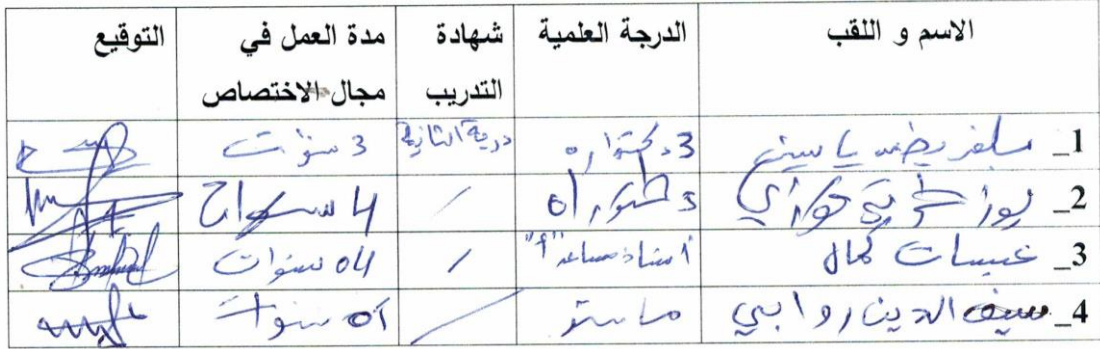 الاسم و اللقب الدرجة العلمية شهادة التدريب مدة العمل في مجال الاختصاص التوقيع
1_ ياسين دكتوراه 3 درجة الثانية 3 سنوات
2_ فوزي دكتوراه / 4 سنوات
3_ عبسات كمال أستاذ مساعد "أ" / 04 سنوات
4_ سيف الدين روابحي ماستر / 05 سنوات